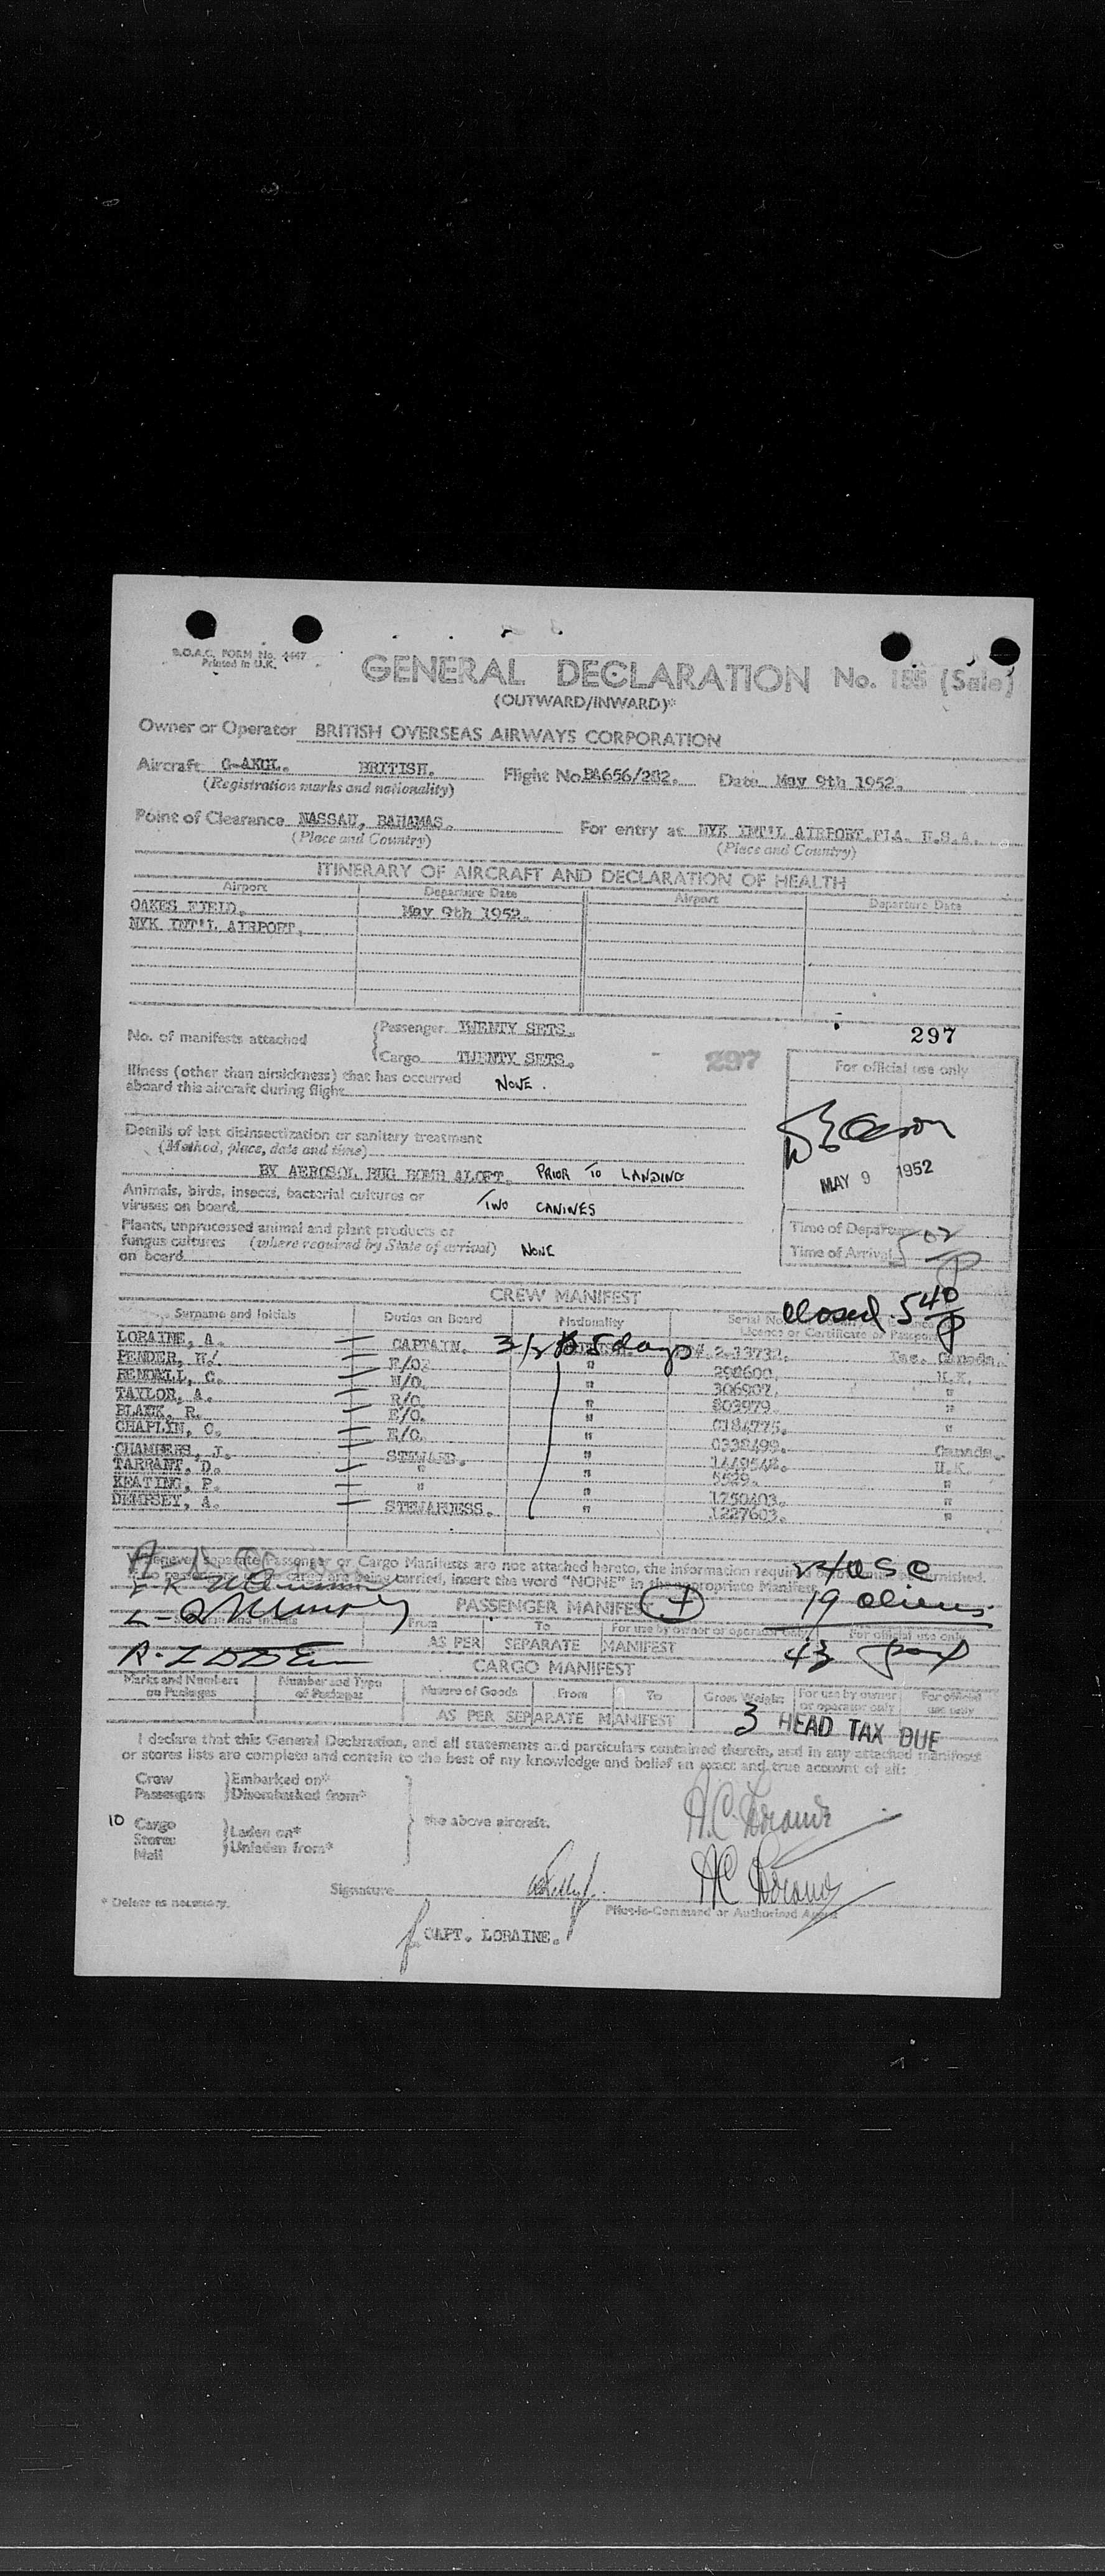 B.O.A.C. FORM No. 1447
Printed in U.K.
GENERAL DECLARATION No. 155 (Sale)
(OUTWARD/INWARD)*
Owner or Operator BRITISH OVERSEAS AIRWAYS CORPORATION
Aircraft G-AKGL. BRITISH. Flight No. BA656/282. Date May 9th 1952.
(Registration marks and nationality)
Point of Clearance NASSAU, BAHAMAS. For entry at NYK INT'L AIRPORT. U.S.A.
(Place and Country) (Place and Country)
ITINERARY OF AIRCRAFT AND DECLARATION OF HEALTH
Airport Departure Date Airport Departure Date
OAKES FIELD. May 9th 1952.
NYK INT'L AIRPORT.
No. of manifests attached
Passenger TWENTY SETS.
Cargo TWENTY SETS.
297
297
For official use only
Illness (other than airsickness) that has occurred
aboard this aircraft during flight NONE.
Details of last disinsectization or sanitary treatment
(Method, place, date and time)
BY AEROSOL BUG BOMB ALOFT. PRIOR TO LANDING
MAY 9 1952
Animals, birds, insects, bacterial cultures or
viruses on board TWO CANINES
Plants, unprocessed animal and plant products or
fungus cultures (where required by State of arrival) NONE
on board
Time of Departure
Time of Arrival 502 P
closed 540 P
CREW MANIFEST
Surname and Initials Duties on Board Nationality Serial No. Licence or Certificate or Passport
LORAINE, A. CAPTAIN. 2-13732. Canada.
PENDER, W. 298600. U.K.
RENDELL, G. N/O. 306907. "
TAYLOR, A. R/O. 803979. "
BLANK, R. E/O. 0184775. "
CHAPLIN, C. E/O. 0338499. Canada.
CHAMBERS, J. STEWARD. 1449548. U.K.
TARRANT, D. " 5529. "
KEATING, P. " 1750403. "
DEMPSEY, A. STEWARDESS. " 1227603. "
Whenever separate Passenger or Cargo Manifests are not attached hereto, the information required furnished.
are being carried, insert the word "NONE" in the appropriate Manifest
USC
19 aliens
PASSENGER MANIFEST
From To For use by owner or operator only For official use only
AS PER SEPARATE MANIFEST
43 pax
CARGO MANIFEST
Marks and Numbers on Packages Number and Type of Packages Nature of Goods From To Gross Weight For use by owner or operator only For official use only
AS PER SEPARATE MANIFEST
3 HEAD TAX DUE
I declare that this General Declaration, and all statements and particulars contained therein, and in any attached manifests
or stores lists are complete and contain to the best of my knowledge and belief an exact and true account of all:
Crew Embarked on*
Passengers Disembarked from*
the above aircraft.
10 Cargo Laden on*
Stores
Mail Unladen from*
Signature
Pilot-in-Command or Authorized Agent
* Delete as necessary.
CAPT. LORAINE.